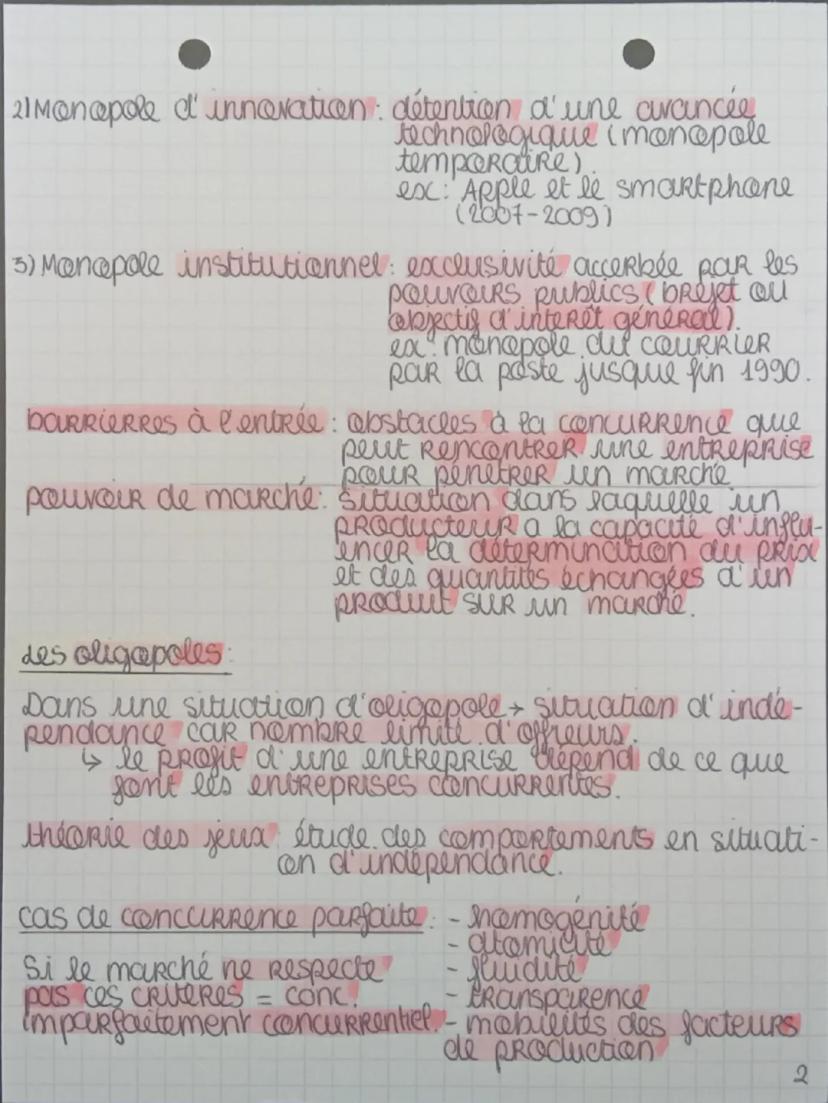 2) Monopole d'innovation : détention d'une avancée
technologique (monopole
temporaire).
ex: Apple et le smartphone
(2007-2009)
3) Monopole institutionnel : exclusivité accerbée par les
pouvoirs publics (brejet ou
objectif d'interêt général).
ex: monopole du courrier
par la poste jusque fin 1990.
barrierres à l'entrée : obstacles à la concurrence que
peut rencontrer une entreprise
pour pénétrer un marché
pouvoir de marché : situation dans laquelle un
producteur a la capacité d'influ-
encer la détermination du prix
et des quantités échangées d'un
produit sur un marché.
des oligopoles :
Dans une situation d'oligopole → situation d'indé-
pendance car nombre limité d'offreurs.
↳ le profit d'une entreprise dépend de ce que
font les entreprises concurrentes.
théorie des jeux : étude des comportements en situati-
on d'indépendance.
cas de concurrence parfaite : - homogénité
- atomicité
Si le marché ne respecte - fluidité
pas ces critères = conc. - transparence
imparfaitement concurrentiel. - mobilités des facteurs
de production
2